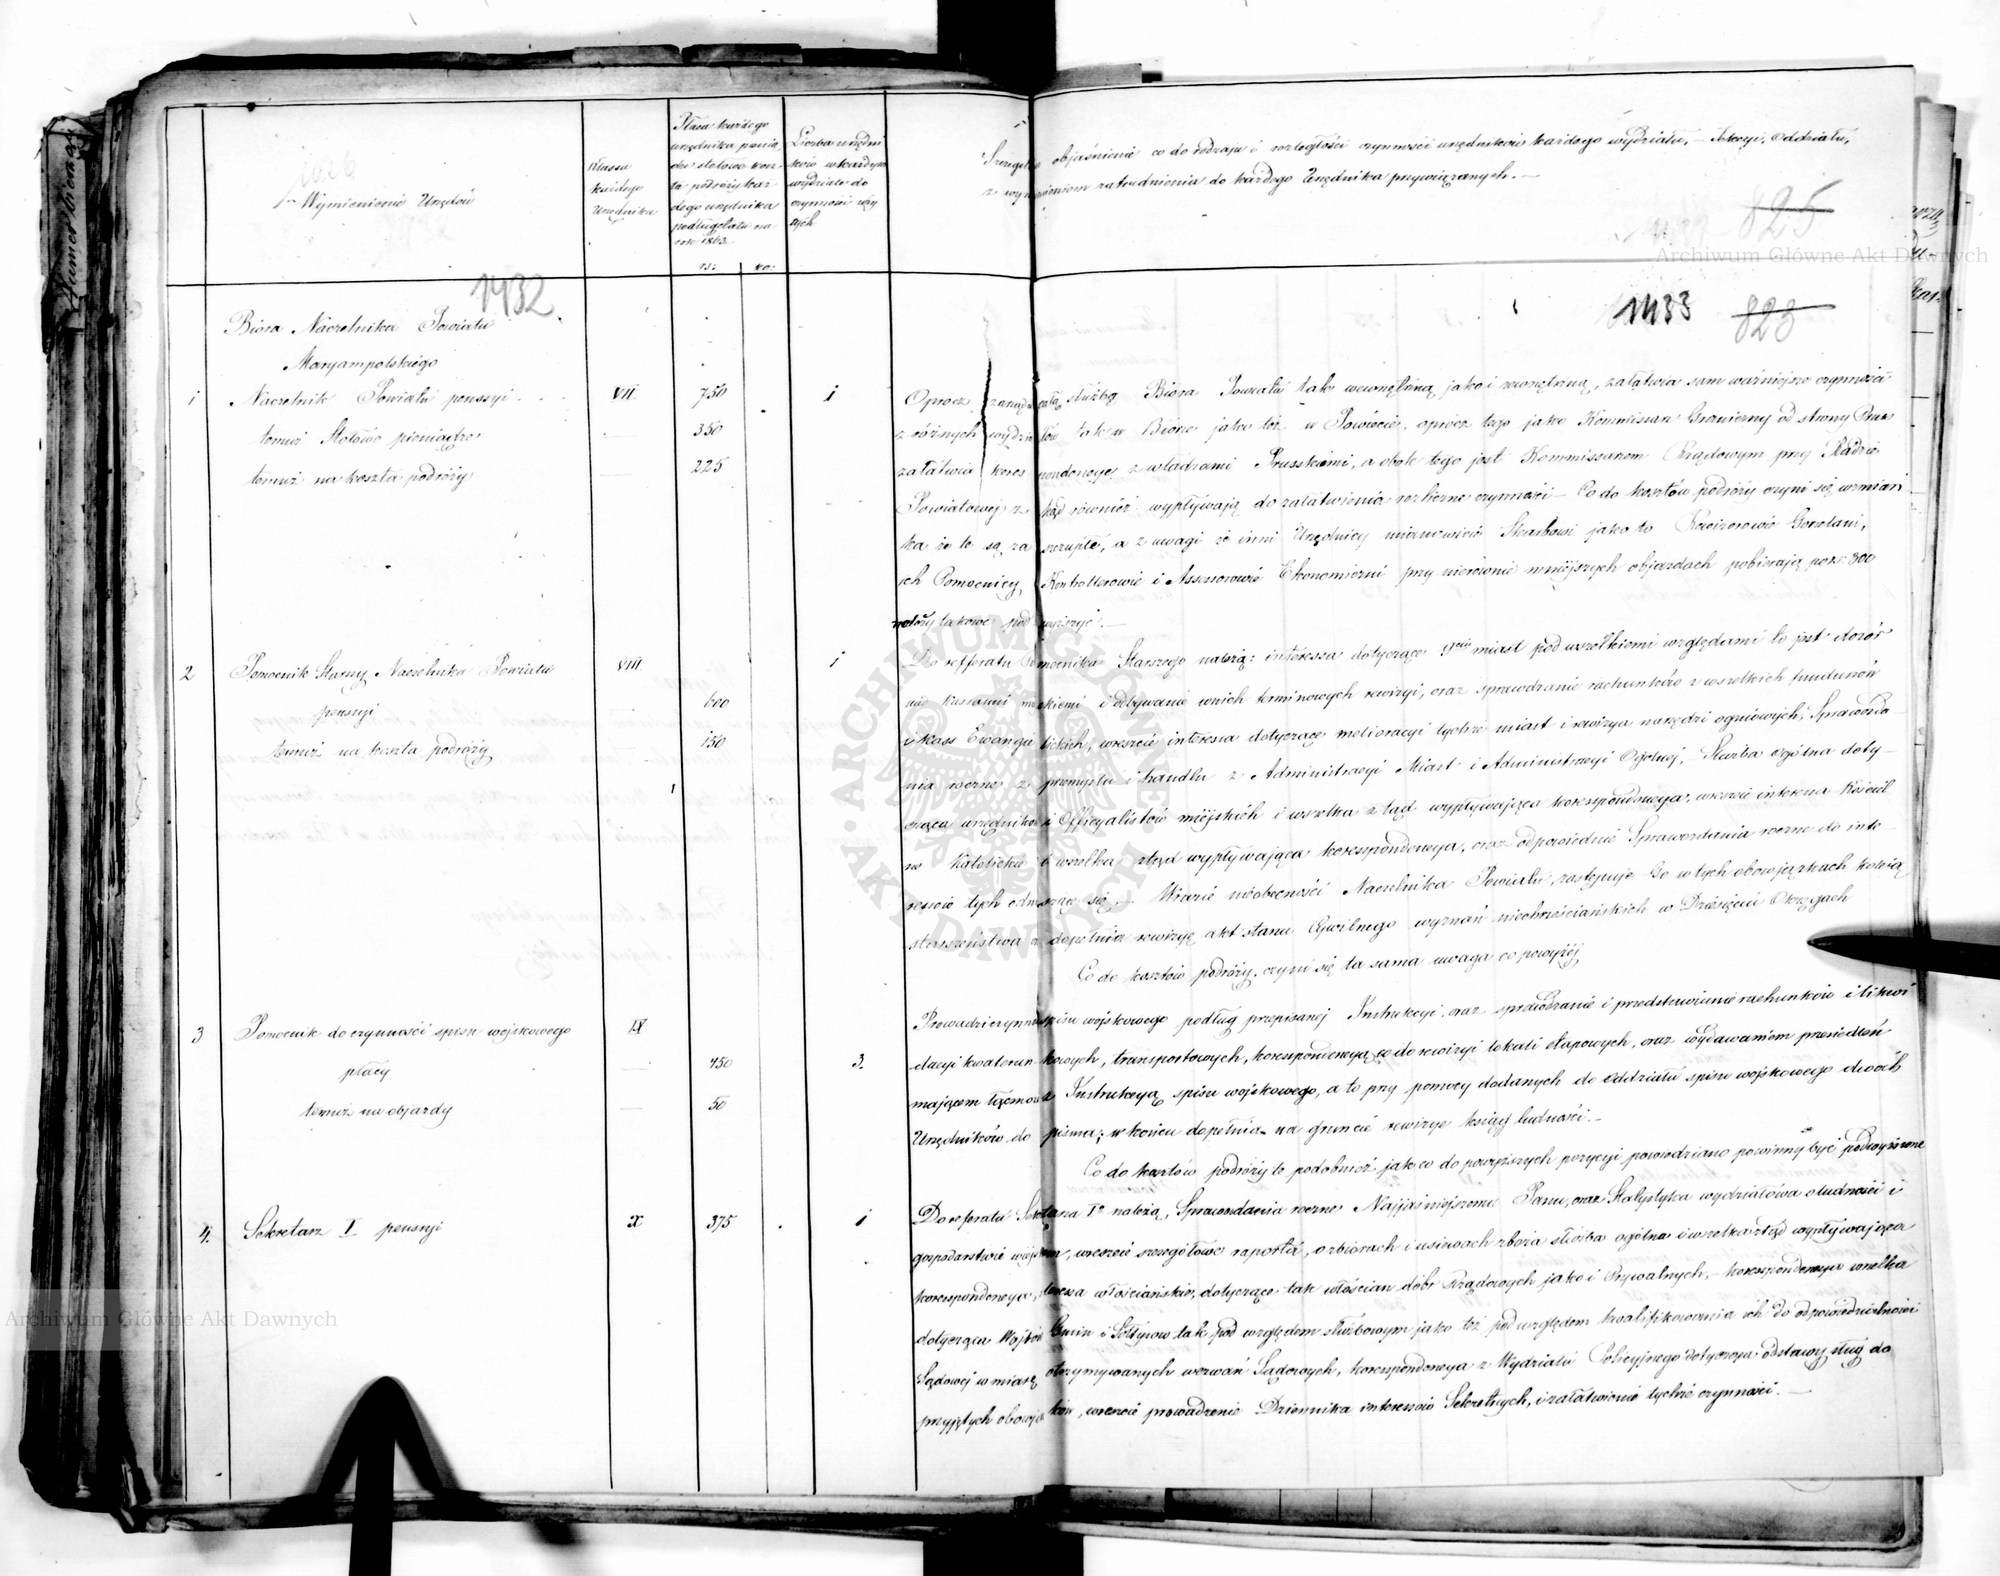 Numer bieżący
Wymienienie Urzędów
Klassa
każdego
Urzędnika
Płaca każdego
urzędnika pienią
dze stołowe kosz
ta podróży każ
dego urzędnika
podług etatu na
rok 1863
rs: ko:
Liczba urzędni
ków w każdym
wydziale do
czynności uży
tych
Szczegółowe objaśnienie co do rodzaju i rozległości czynności urzędników każdego wydziału, – Sekcyi, Oddziału,
z wymienieniem zatrudnienia do każdego Urzędnika przywiązanych. –
825
1432
1433 823
Bióra Naczelnika Powiatu
Maryampolskiego
1 Naczelnik Powiatu pensyi VII 750 1
temuż Stołowe pieniądze 350
temuż na koszta podróży 225
Oprócz zarządu całą służbą Bióra Powiatu tak wewnętrzną jako i zewnętrzną, załatwia sam ważniejsze czynności
z różnych wydziałów tak w Biórze jako też w Powiecie, oprócz tego jako Kommissarz Graniczny od strony Prus
załatwia korespondencye z władzami Pruskiemi, a obok tego jest Kommissarzem Rządowym przy Radzie
Powiatowej z kąd również wypływają do załatwienia rozliczne czynności – Co do kosztów podróży czyni się wzmian
ka że te są za szczupłe, a z uwagi że inni Urzędnicy mianowicie Skarbowi jako to Rewizorowie Gorzelani,
ich Pomocnicy Kontrollerowie i Assessorowie Ekonomiczni przy nierównie mniejszych objazdach pobierają po rs: 300
należy takowe podwyższyć. –
2 Pomocnik Starszy Naczelnika Powiatu VIII 1
pensyi 600
temuż na koszta podróży 150
Do refferatu Pomocnika Starszego należą: interessa dotyczące miast pod wszelkiemi względami to jest dozór
nad kassami miejskiemi i odbywanie w nich terminowych rewizyi, oraz sprawdzanie rachunków z wszelkich funduszów
i kass Ewangielickich, wreszcie interessa dotyczące melioracyi tychże miast i rewizya narzędzi ogniowych, Sprawozda
nia roczne z przemysłu i handlu z Administracyi Miast i Administracyi Ogólnej, – Służba ogólna doty–
cząca urzędników i Officyalistów miejskich i wszelka z tąd wypływająca korespondencya, wreszcie interessa Kościoł
a Katolickie i wszelka ztąd wypływająca korespondencya, oraz odpowiednie Sprawozdania roczne do inte–
ressów tych odnoszące się. – W razie nieobecności Naczelnika Powiatu, zastępuje Go w tych obowiązkach koleją
starszeństwa a dopełnia rewizyę akt stanu Cywilnego wyznań niechrześciańskich w Dziesięciu Okręgach
Co do kosztów podróży, czyni się ta sama uwaga co powyżej
3 Pomocnik do czynności spisu wojskowego IX
płacy 450 3.
temuż na objazdy 50
Prowadzi czynności spisu wojskowego podług przepisanej Instrukcyi, oraz sprawdzanie i przedstawianie rachunków i likwi
dacyi kwaterunkowych, transportowych, korespondencyą co do rewizyi lokali etapowych, oraz wydawaniem przesiedleń
mającem łączność z Instrukcyą spisu wojskowego, a to przy pomocy dodanych do Oddziału spisu wojskowego dwóch
Urzędników do pisma; w końcu dopełnia na gruncie rewizye ksiąg ludności. –
Co do kosztów podróży to podobnież jak co do powyższych pozycyi powiedziano powinny być podwyższone
4. Sekretarz I pensyi X 375 1
Do referatu Sekretarza Igo należą, Sprawozdania roczne Najjaśniejszemu Panu, oraz Statystyka wydziałowa o ludności i
gospodarstwie wiejskiem, wreszcie szczegółowe raporta, o zbiorach i usiewach zboża służba ogólna i wszelka ztąd wypływająca
korespondencya, interessa włościańskie, dotyczące tak włościan dóbr Rządowych jako i Prywatnych, – korespondencya wszelka
dotycząca Wójtów Gmin i Sołtysów tak pod względem służbowym jako też pod względem kwalifikowania ich do odpowiedzialności
Sądowej w miarę otrzymywanych wezwań Sądowych, korespondencya z Wydziału Policyjnego dotycząca odstawy sług do
przyjętych obowiązków, wreszcie prowadzenie Dziennika interessów Sekretnych, i załatwienie tychże czynności. –
Archiwum Główne Akt Dawnych
Archiwum Główne Akt Dawnych
ARCHIWUM GŁÓWNE AKT DAWNYCH